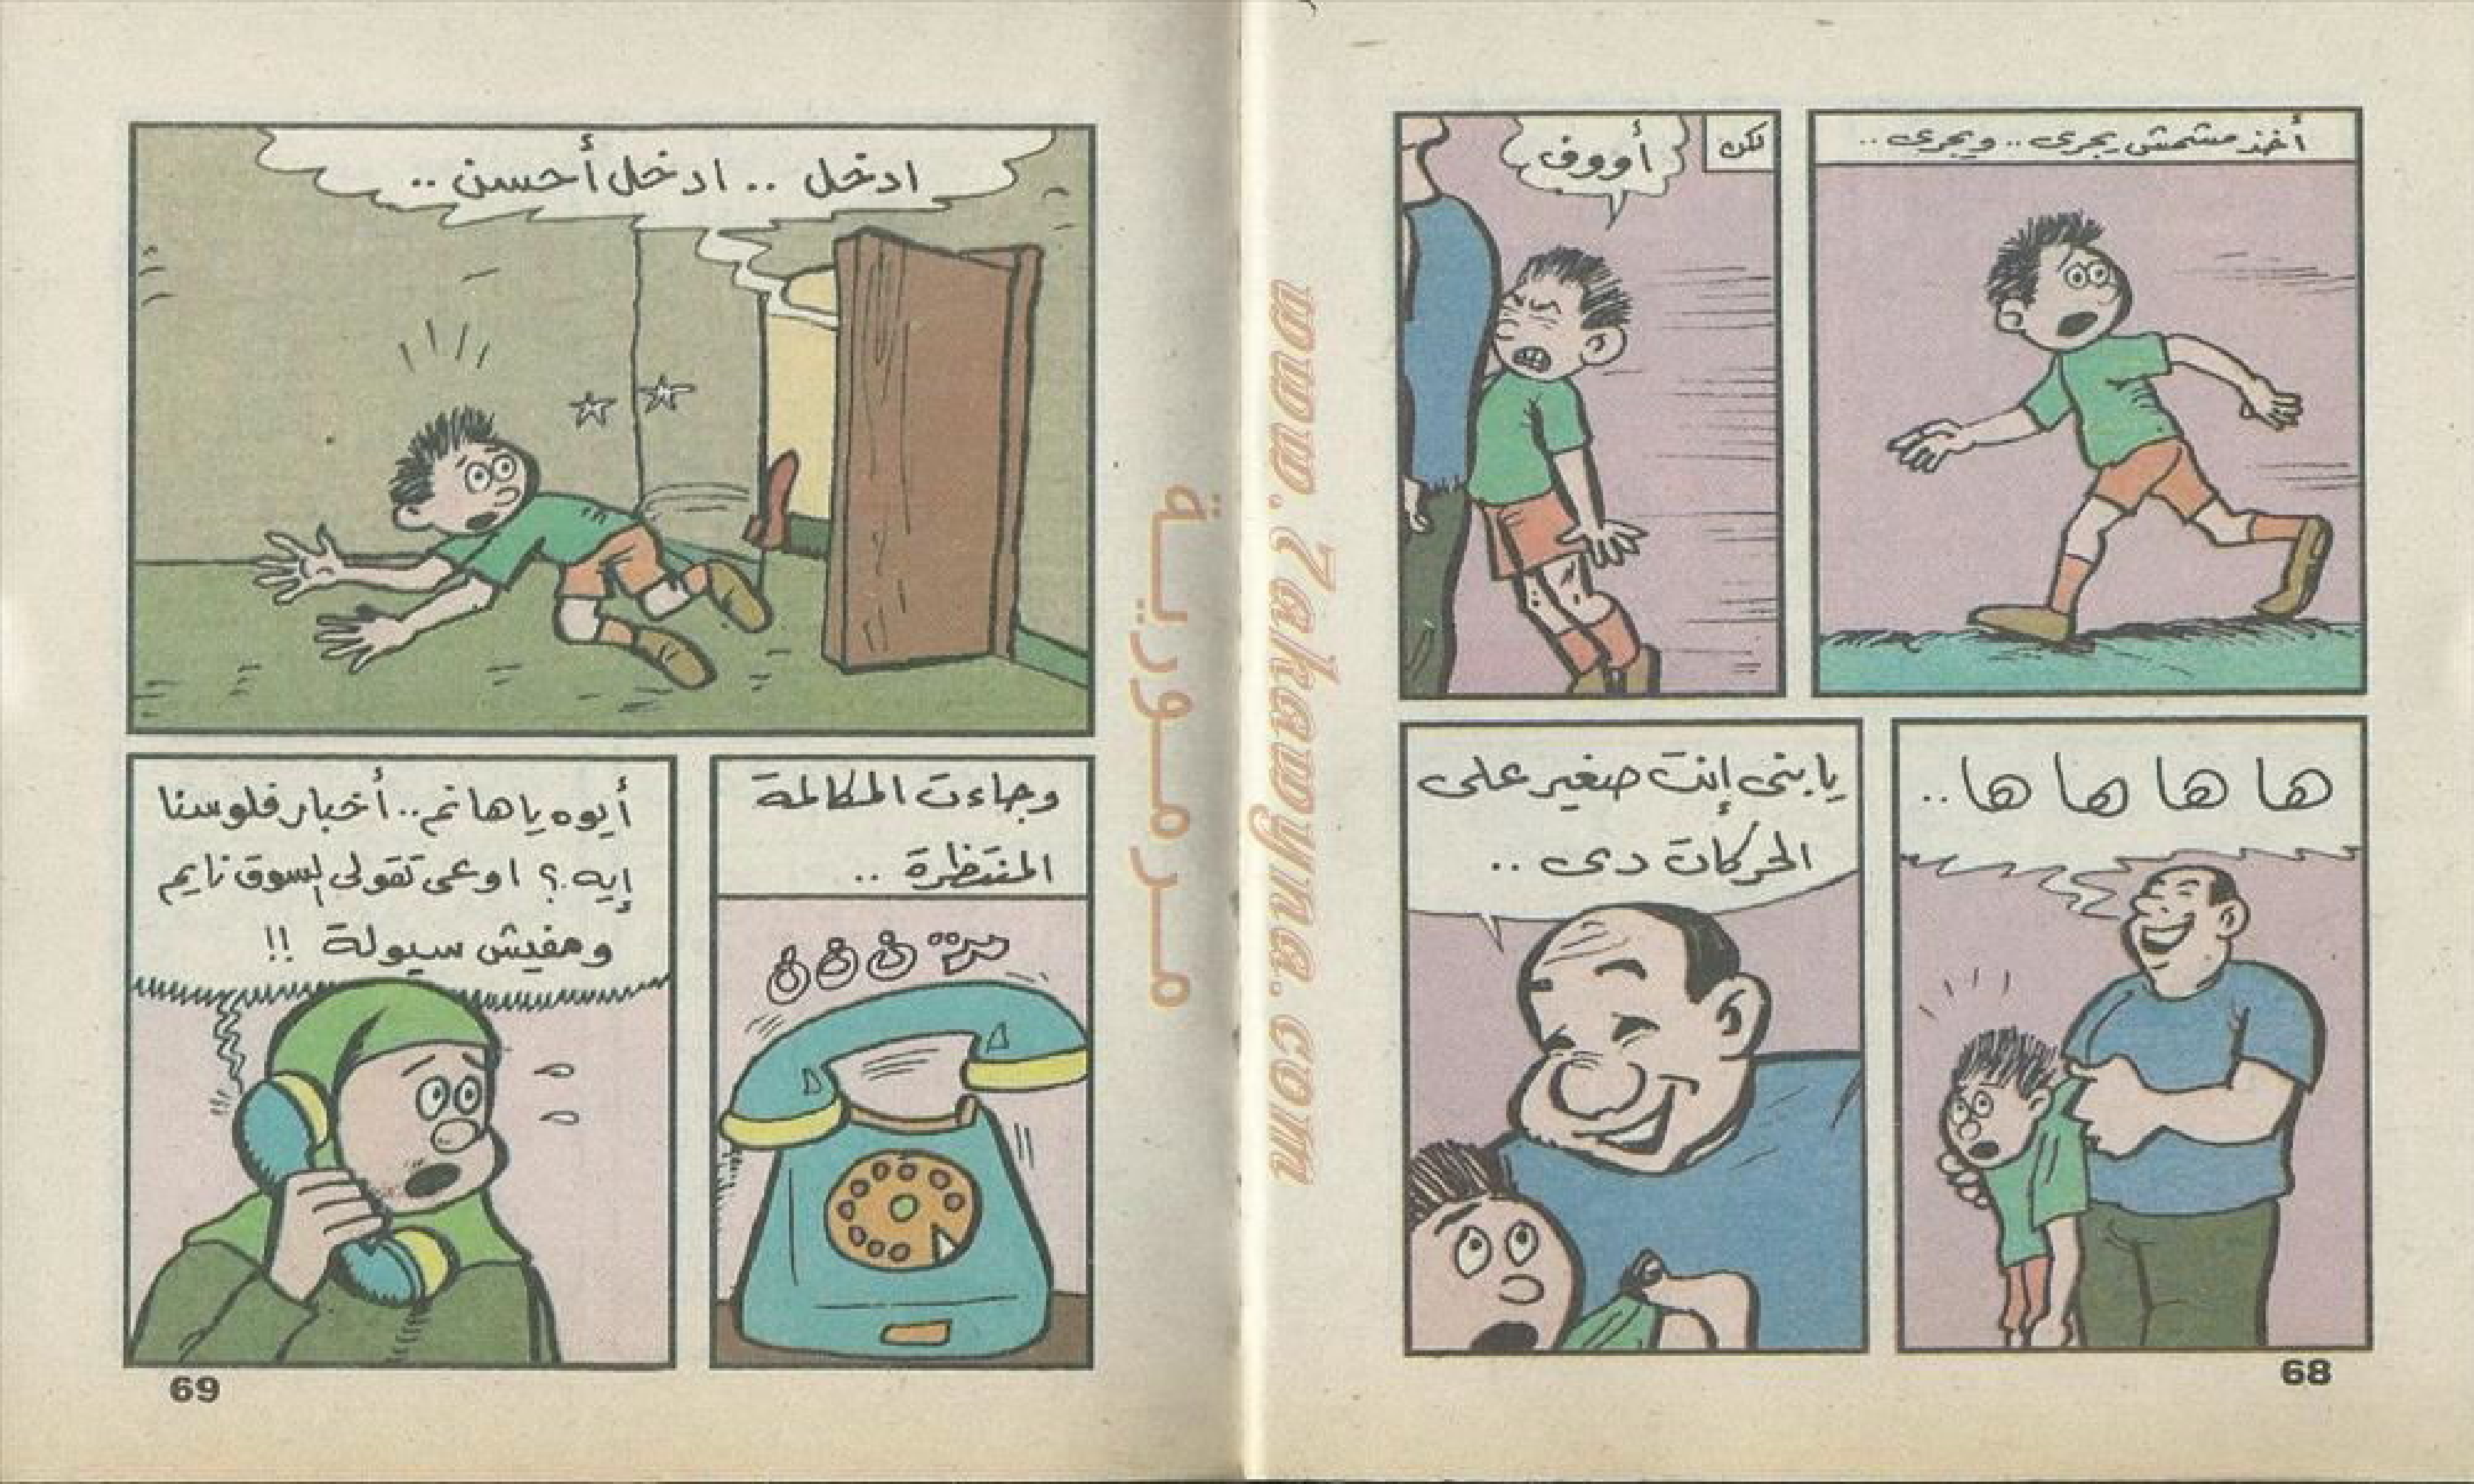 أخذ مشمش يجرى .. ويجرى ..
لكن
أووف
ها ها ها ها ..
يا بنى إنت صغير على
الحركات دى ..
68
www.7akawyna.com
مرمورية
ادخل .. ادخل أحسن ..
وجاءت المكالمة
المنتظرة ..
أيوه يا هانم .. أخبار فلوسنا
إيه ؟ اوعى تقولى السوق نايم
ومفيش سيولة !!
69